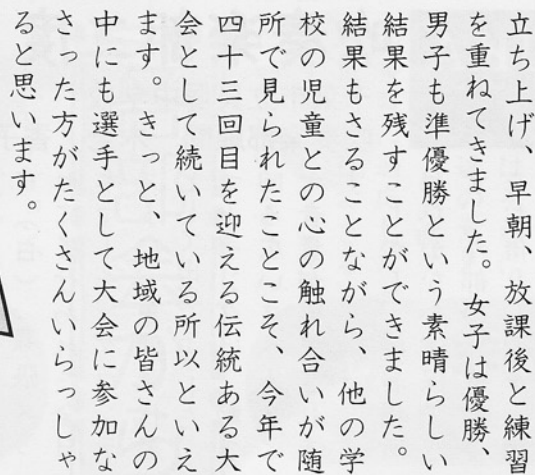 立ち上げ、早朝、放課後と練習
を重ねてきました。女子は優勝、
男子も準優勝という素晴らしい
結果を残すことができました。
結果もさることながら、他の学
校の児童との心の触れ合いが随
所で見られたことこそ、今年で
四十三回目を迎える伝統ある大
会として続いている所以といえ
ます。きっと、地域の皆さんの
中にも選手として大会に参加な
さった方がたくさんいらっしゃ
ると思います。